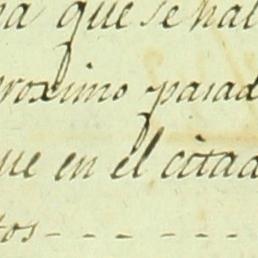 na que se hal
roximo pasad
ue en el citad
tos - - - - -